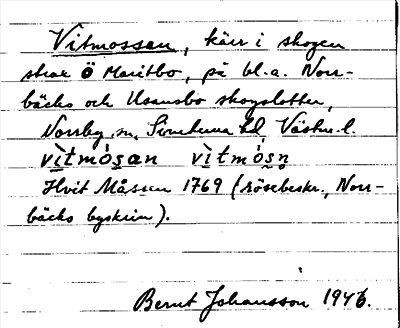 Vitmossen, kärr i skogen
strax Ö Maritbo, på bl.a. Norr-
bäcks och Usansbo skogslotter,
Norrby sn, Simtuna hd Västm.l.
vìtmósan vìtmósn̥
Hvit Måssen 1769 (rösebeskr., Norr-
bäcks byskrin).
Bernt Johansson 1946.